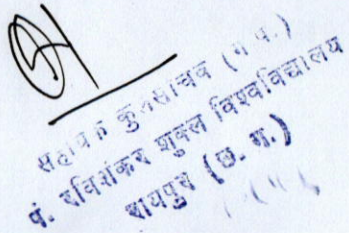 सहायक कुलसचिव
पं. रविशंकर शुक्ल विश्वविद्यालय
रायपुर (छ. ग.)